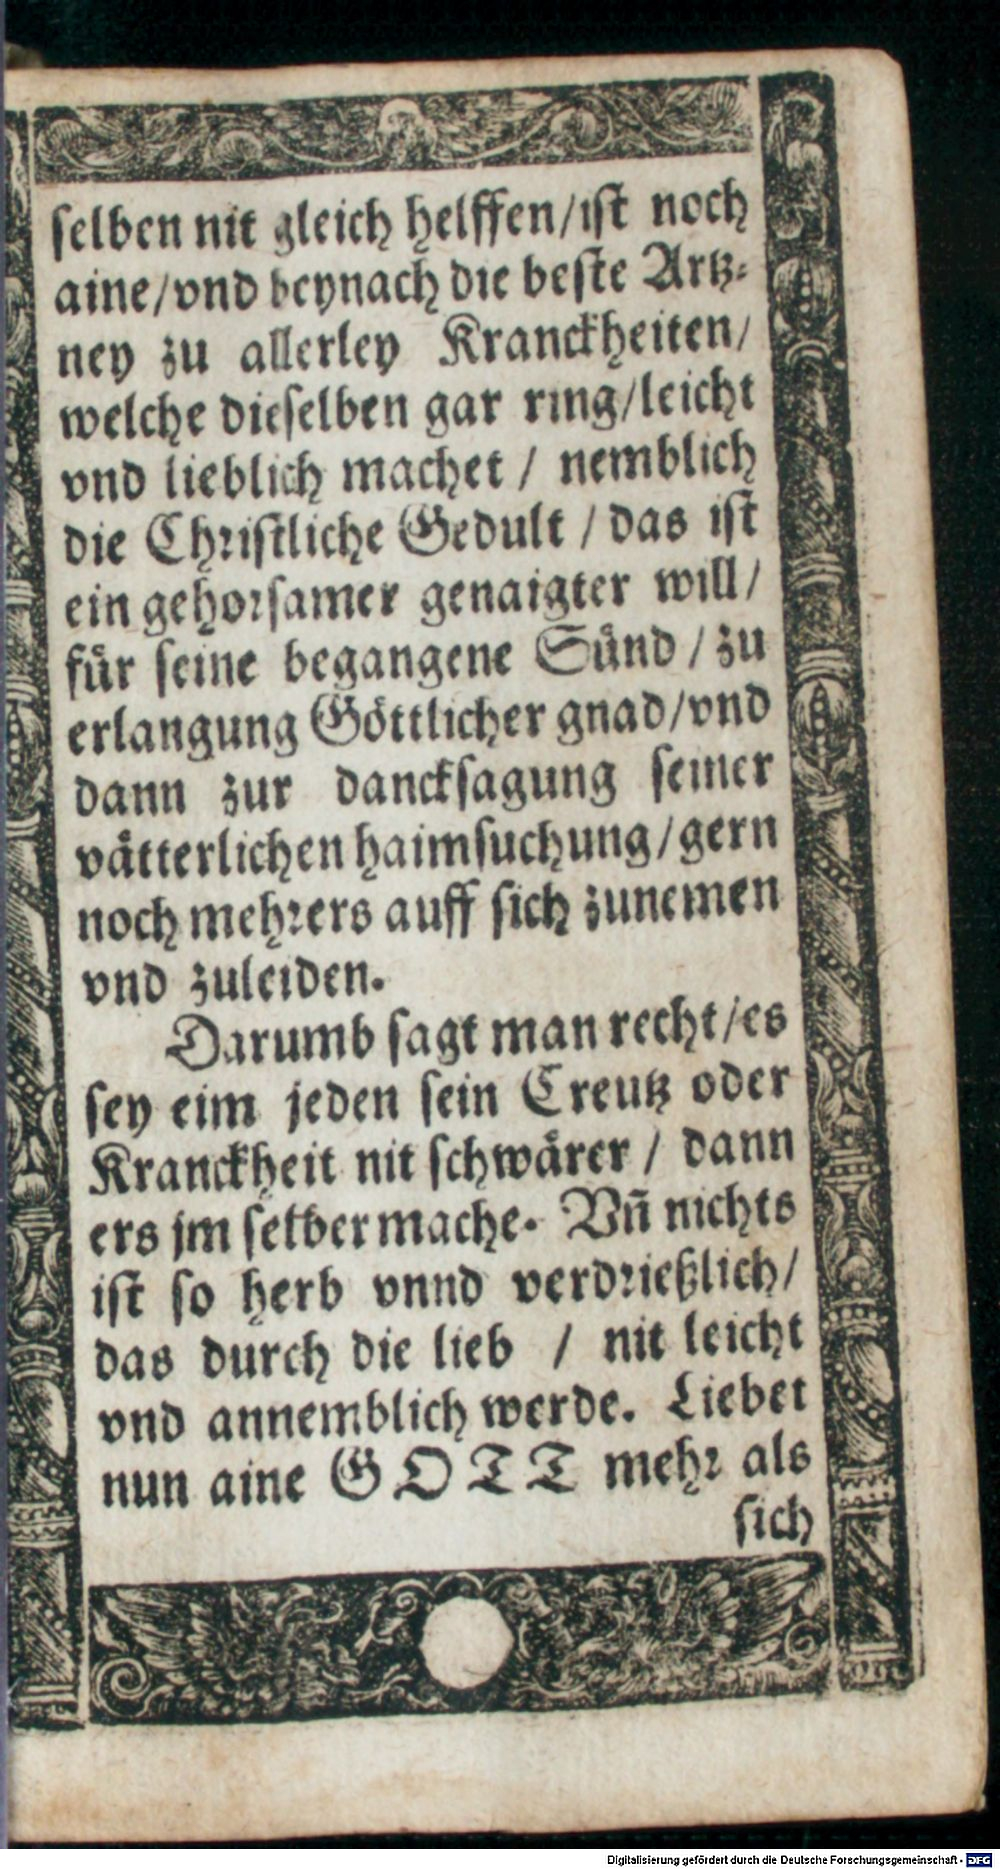 selben nit gleich helffen/ist noch
aine/vnd beynach die beste Artz-
ney zu allerley Kranckheiten/
welche dieselben gar ring/leicht
vnd lieblich machet / nemblich
die Christliche Gedult / das ist
ein gehorsamer genaigter will/
für seine begangene Sünd / zu
erlangung Göttlicher gnad/vnd
dann zur dancksagung seiner
vätterlichen haimsuchung/gern
noch mehrers auff sich zunemen
vnd zuleiden.
Darumb sagt man recht/es
sey eim jeden sein Creutz oder
Kranckheit nit schwärer / dann
ers jm selber mache. Vñ nichts
ist so herb vnnd verdrießlich/
das durch die lieb / nit leicht
vnd annemblich werde. Liebet
nun aine GOTT mehr als
sich
Digitalisierung gefördert durch die Deutsche Forschungsgemeinschaft - DFG